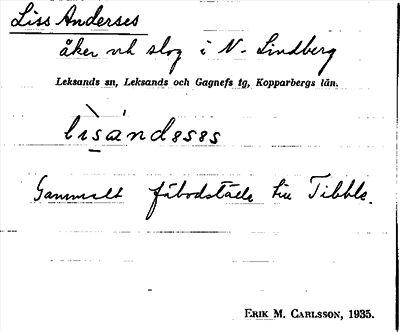 Liss Anderses
åker och slog i N. Lindberg
Leksands sn, Leksands och Gagnefs tg, Kopparbergs län.
lìsándeses
Gammalt fäbodställe till Tibble.
ERIK M. CARLSSON, 1935.